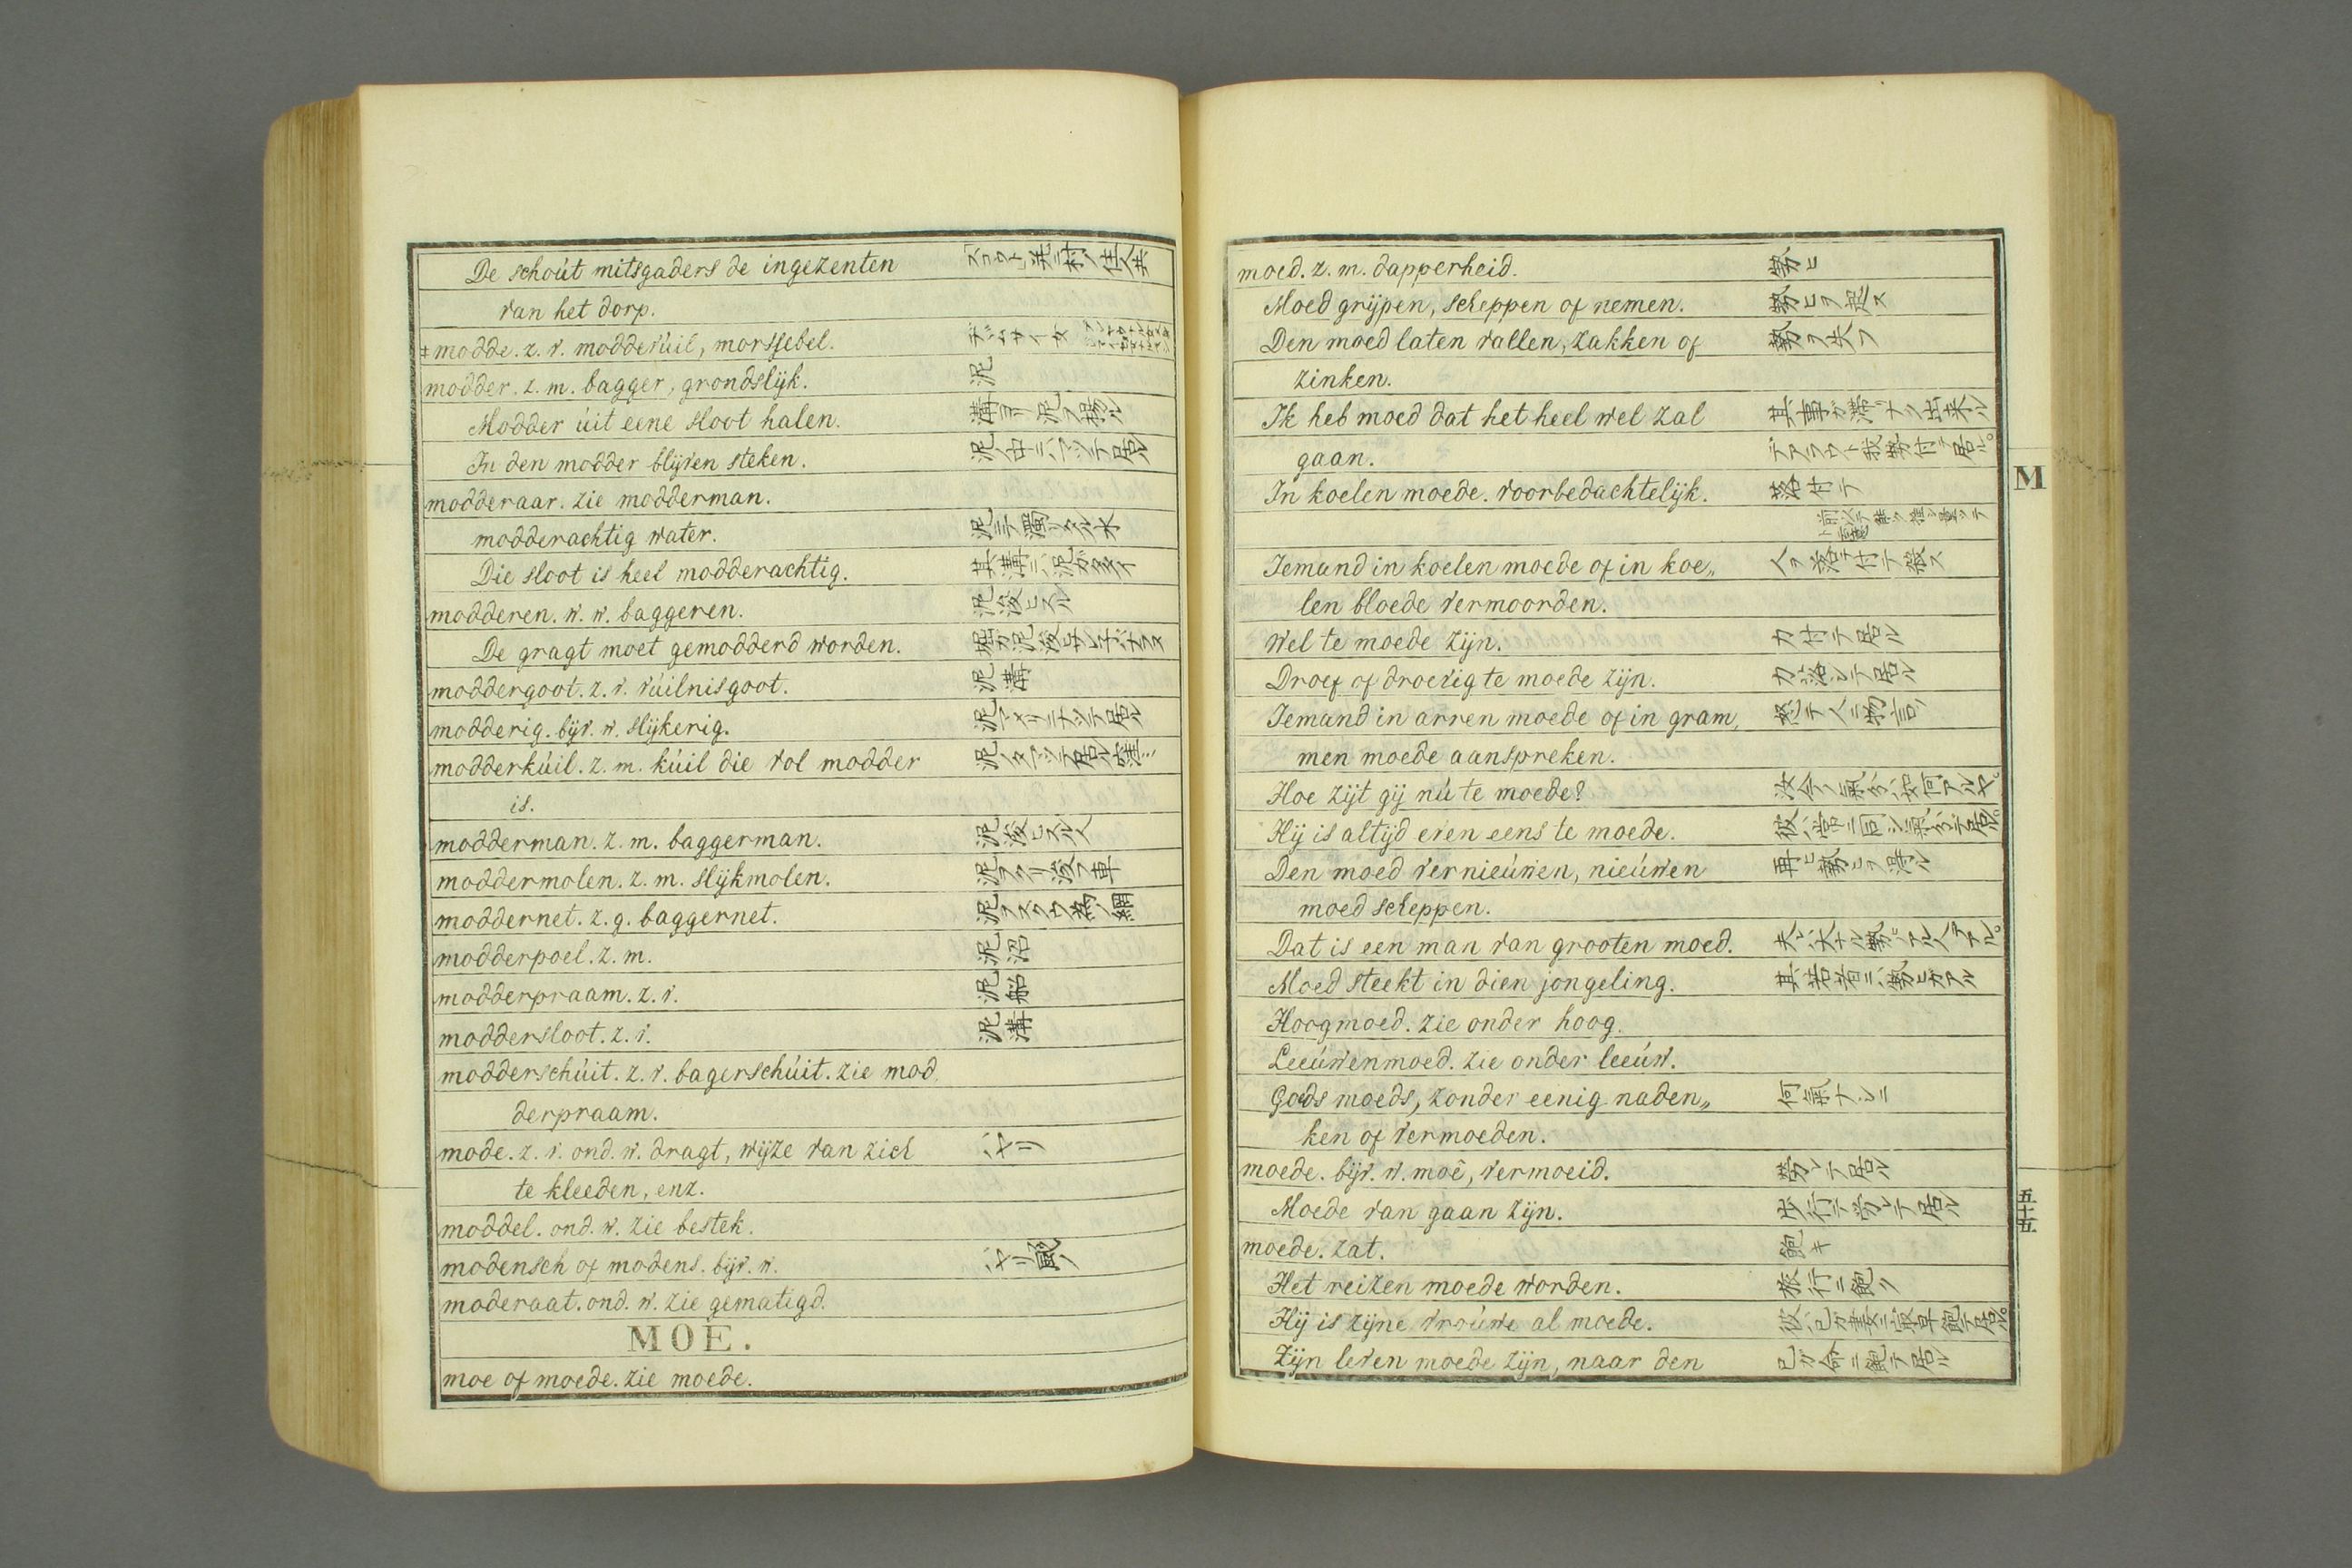 De schoút mitsgaders de ingezenten
van het dorp.
modde. z. v. moddevúil, morssebel.
modder. z. m. bagger, grondslijk. 泥
Modder úit eene sloot halen.
In den modder blijven steken.
modderaar. zie modderman.
modderachtig water.
Die sloot is heel modderachtig. 其溝ニハ泥ガ多イ
modderen. w. w. baggeren. 泥浚ヒスル
De gragt moet gemodderd worden.
moddergoot. z. v. vúilnisgoot. 泥溝
modderig. bijv. w. slijkerig.
modderkúil. z. m. kúil die vol modder
is.
modderman. z. m. baggerman. 泥浚ヒスル人
moddermolen. z. m. slijkmolen.
moddernet. z. g. baggernet.
modderpoel. z. m. 泥沼
modderpraam. z. v. 泥船
moddersloot. z. v. 泥溝
modderschúit. z. v. bagerschúit. zie mod
derpraam.
mode. z. v. ond. w. dragt, wijze van zich ハヤリ
te kleeden, enz.
moddel. ond. w. zie bestek.
modensch of modens. bijv. w.
moderaat. ond. w. zie gematigd.
MOE.
moe of moede. zie moede.
moed. z. m. dapperheid. 勢ヒ
Moed grijpen, scheppen of nemen. 勢ヒヲ起ス
Den moed laten vallen, zakken of 勢ヲ失フ
zinken.
Ik heb moed dat het heel wel zal 其事ガ滞リナク出来ル
gaan.
In koelen moede. voorbedachtelijk. 落付テ
Iemand in koelen moede of in koe„ 人ヲ落付テ殺ス
len bloede vermoorden.
Wel te moede zijn. 力付テ居ル
Droef of droevig te moede zijn. 力落シテ居ル
Iemand in arren moede of in gram„
men moede aanspreken.
Hoe zijt gij nú te moede?
Hij is altijd even eens te moede.
Den moed vernieúwen, nieúwen 再ヒ勢ヒヲ得ル
moed scheppen.
Dat is een man van grooten moed.
Moed steekt in dien jongeling. 其若者ニハ勢ヒガアル
Hoogmoed. zie onder hoog.
Leeúwenmoed. zie onder leeúw.
Goeds moeds, zonder eenig naden„ 何氣ナシニ
ken of vermoeden.
moede. bijv. w. moê, vermoeid. 労レテ居ル
Moede van gaan zijn. 歩行テ労レテ居ル
moede. zat. 飽キ
Het reizen moede worden. 旅行ニ飽ク
Hij is zijne vroúwe al moede.
Zijn leven moede zijn, naar den 己ガ命ニ飽テ居ル
M
五十五